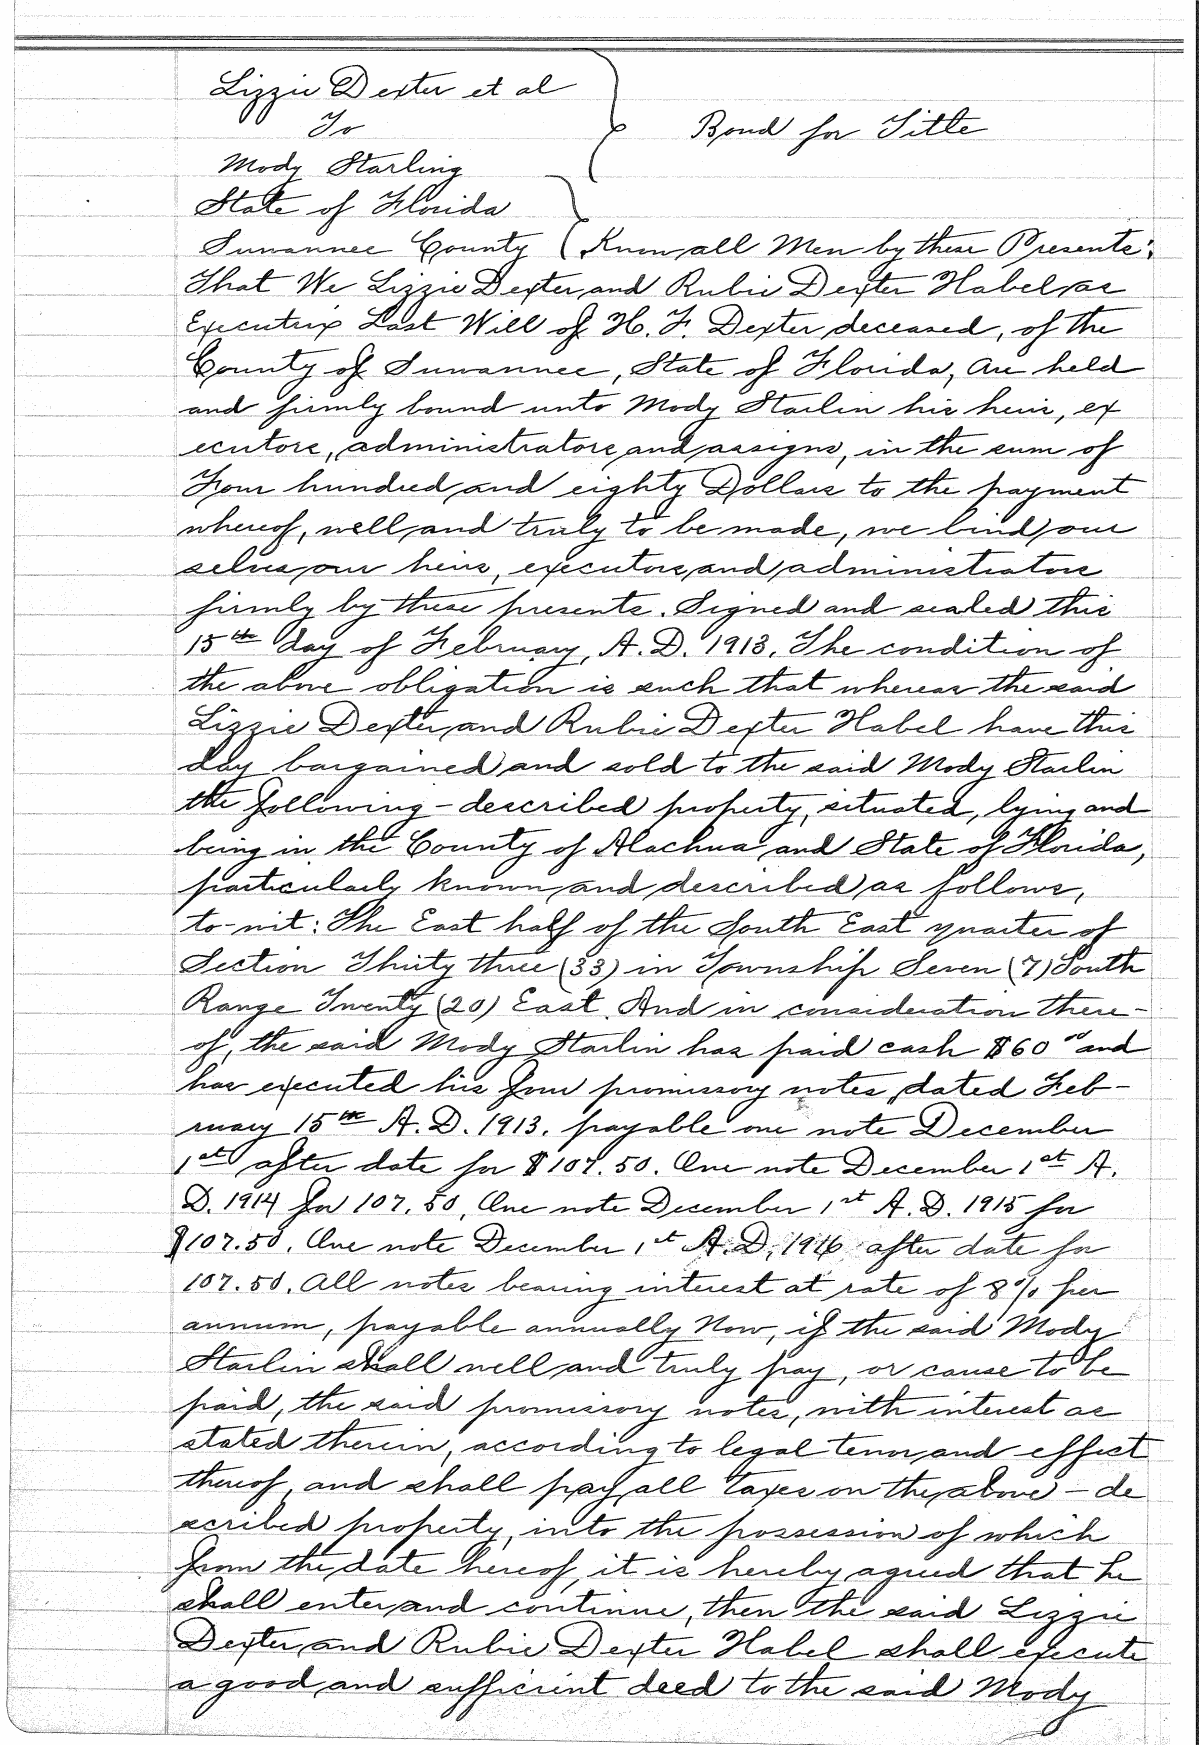 Lizzie Dexter et al
To
Bond for Title
Mody Starling
State of Florida
Suwannee County ( Know all Men by these Presents:
That We Lizzie Dexter and Rubie Dexter Habel as
Executrix Last Will of H. F. Dexter deceased, of the
County of Suwannee, State of Florida, are held
and firmly bound unto Mody Starlin his heirs, ex
ecutors, administrators and assigns, in the sum of
Four hundred and eighty Dollars to the payment
whereof, well and truly to be made, we bind our
selves our heirs, executors and administrators
firmly by these presents. Signed and sealed this
15th day of February, A.D. 1913. The condition of
the above obligation is such that whereas the said
Lizzie Dexter and Rubie Dexter Habel have this
day bargained and sold to the said Mody Starlin
the following-described property, situated, lying and
being in the County of Alachua and State of Florida,
particularly known and described as follows,
to-wit: The East half of the South East quarter of
Section Thirty three (33) in Township Seven (7) South
Range Twenty (20) East. And in consideration there-
of, the said Mody Starlin has paid cash $60 and
has executed his four promissory notes dated Feb-
ruary 15th A.D. 1913. payable one note December
1st after date for $107.50. One note December 1st A.
D. 1914 for 107.50, One note December 1st A.D. 1915 for
$107.50. One note December 1st A.D. 1916 after date for
107.50. All notes bearing interest at rate of 8% per
annum, payable annually Now, if the said Mody
Starlin shall well and truly pay, or cause to be
paid, the said promissory notes, with interest as
stated therein, according to legal tenor and effect
thereof, and shall pay all taxes on the above-de
scribed property, into the possession of which
from the date hereof, it is hereby agreed that he
shall enter and continue, then the said Lizzie
Dexter and Rubie Dexter Habel shall execute
a good and sufficient deed to the said Mody